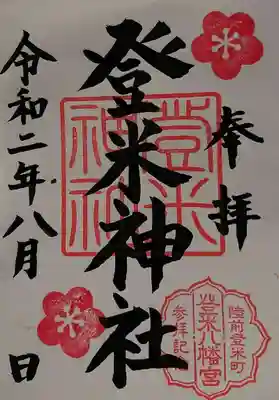 奉拝
登米神社
令和二年八月 日
登米
神社
陸前登米町
登米八幡宮
参拝記念